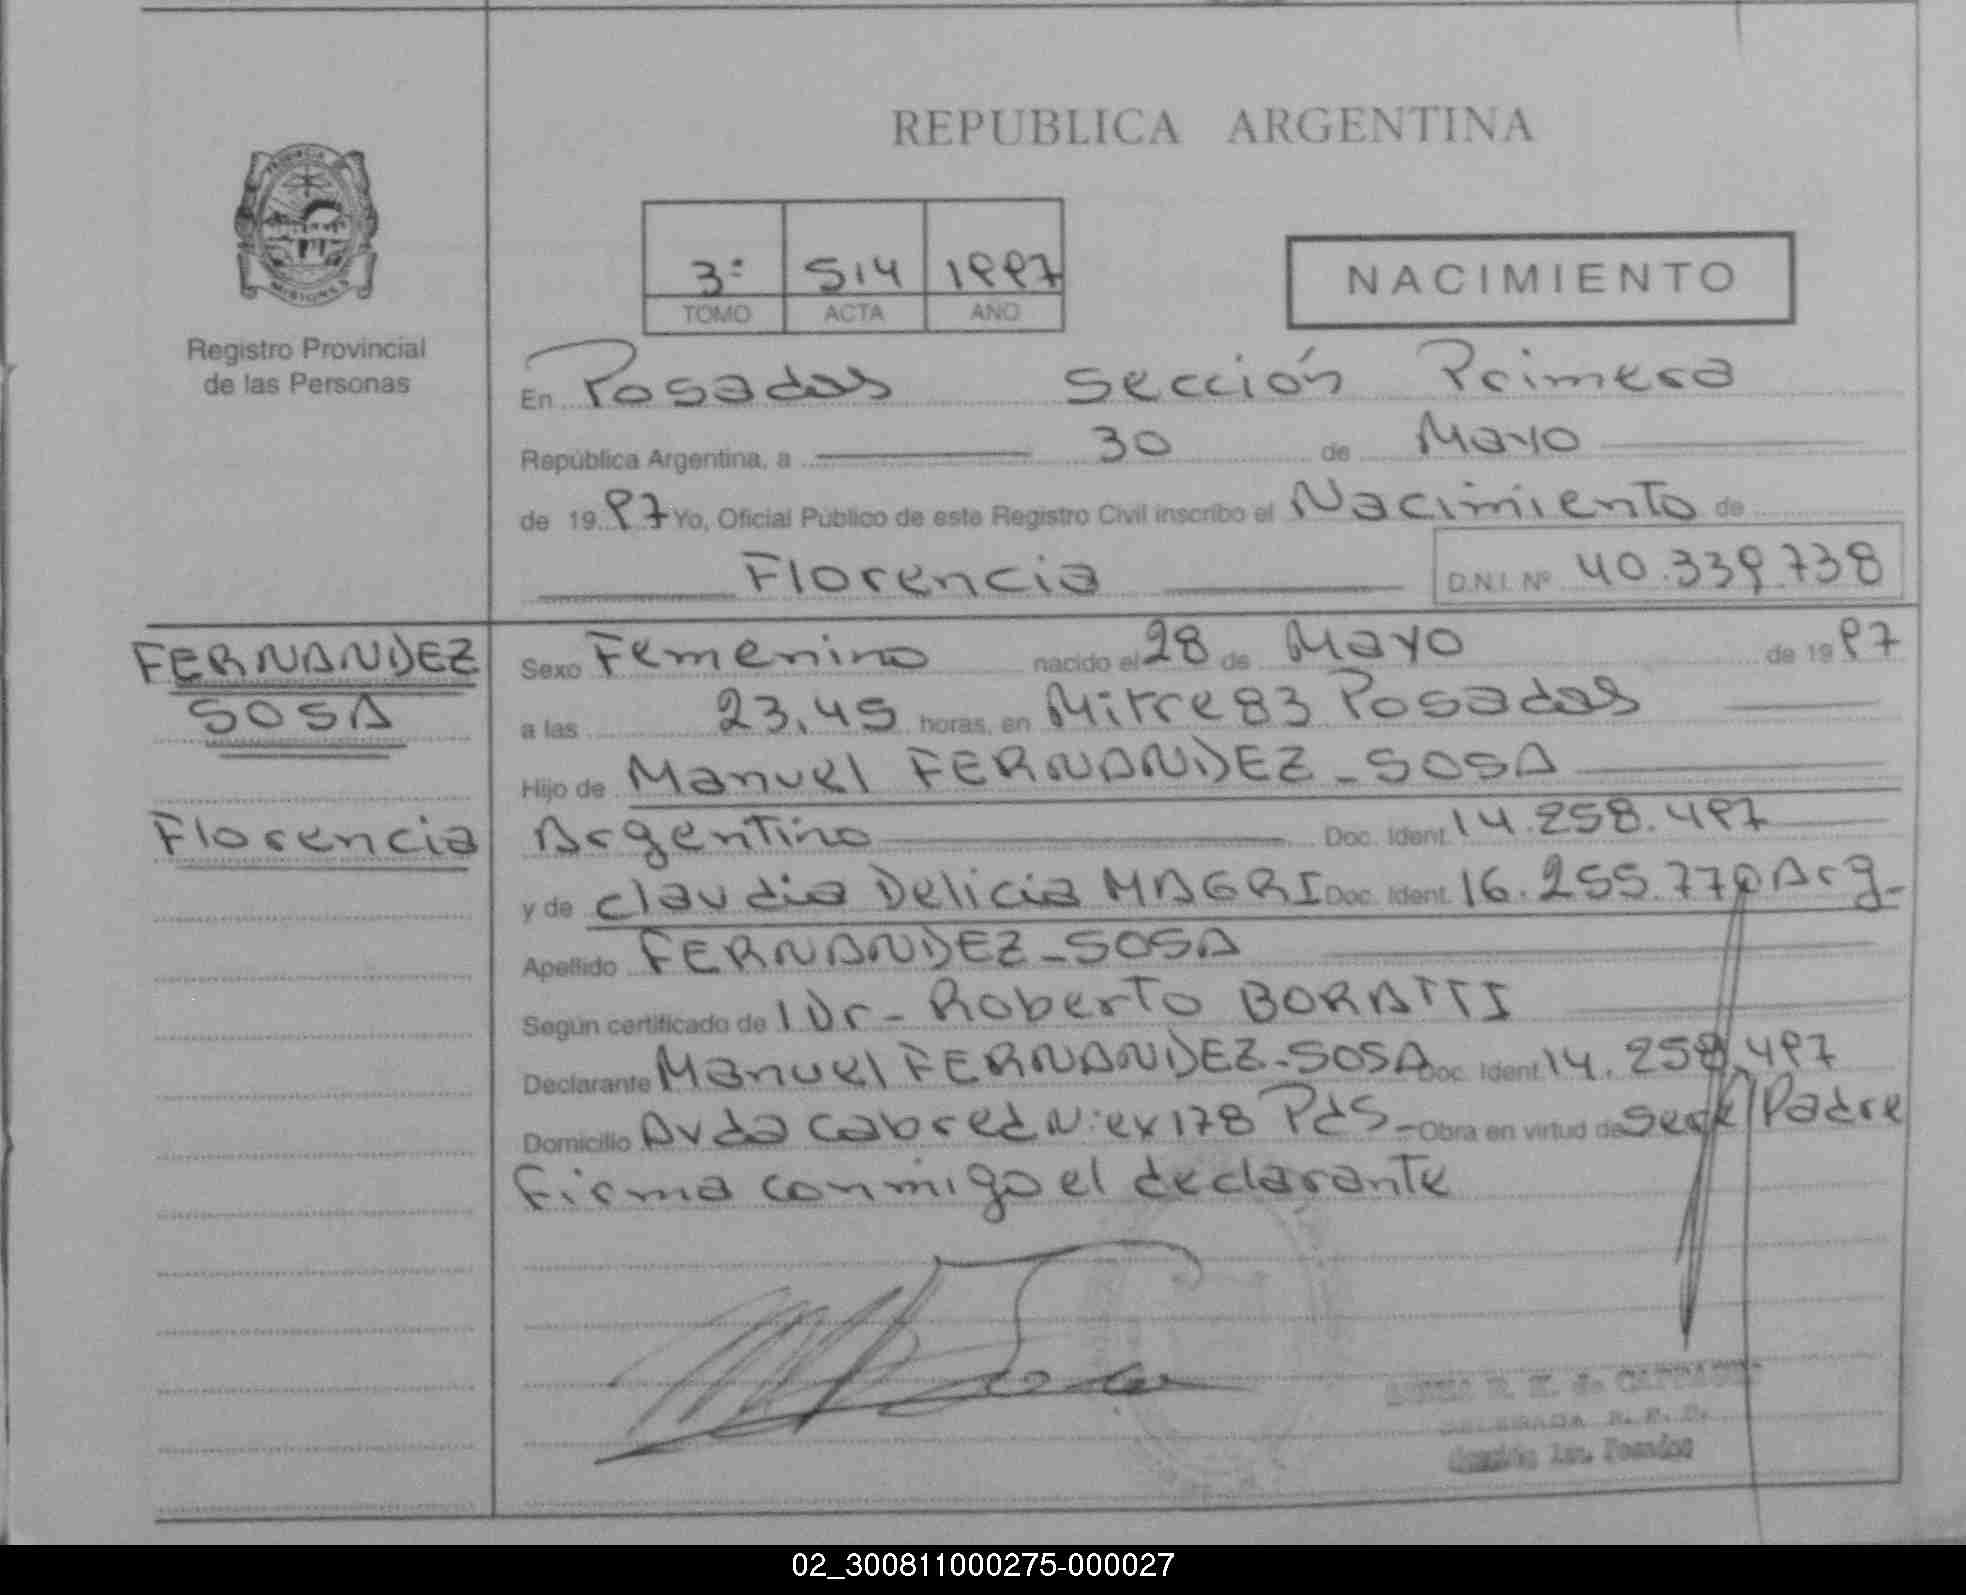 REPUBLICA ARGENTINA
PROVINCIA
MISIONES
Registro Provincial
de las Personas
3º 514 1997
TOMO ACTA AÑO
NACIMIENTO
En Posadas Sección Primera
República Argentina, a 30 de Mayo
de 1997 Yo, Oficial Público de este Registro Civil inscribo el Nacimiento de
Florencia D.N.I. Nº 40.339.738
FERNANDEZ
SOSA
Florencia
Sexo Femenino nacido el 28 de Mayo de 1997
a las 23,45 horas, en Mitre 83 Posadas
Hijo de Manuel FERNANDEZ-SOSA
Argentino Doc. Ident. 14.258.497
y de Claudia Delicia MAGRI Doc. Ident. 16.255.770 Arg-
Apellido FERNANDEZ-SOSA
Según certificado de l Dr- Roberto BORATTI
Declarante Manuel FERNANDEZ-SOSA Doc. Ident. 14.258.497
Domicilio Avda Cabred Nº 178 Pds- Obra en virtud de ser Padre
Firma conmigo el declarante
DELEGADA R. P. P.
Sección 1ra. Posadas
02_300811000275-000027